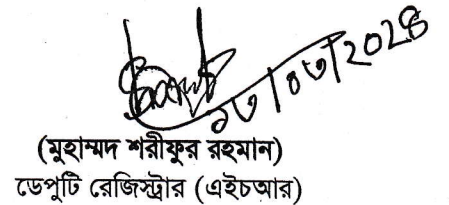 ১৩/০৩/2024
(মুহাম্মদ শরীফুর রহমান)
ডেপুটি রেজিস্ট্রার (এইচআর)